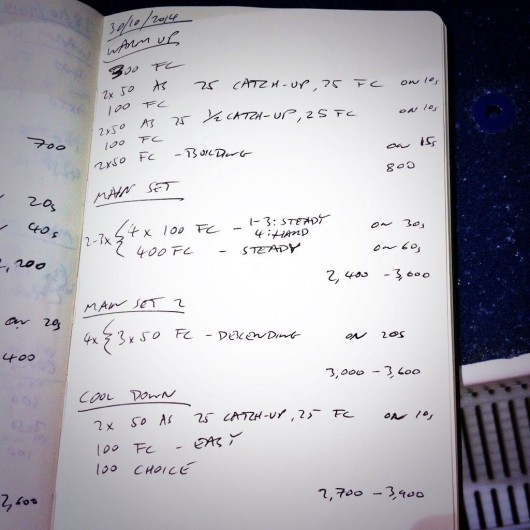 700
20s
40s
2,200
on 20s
400
2,600
30/10/2014
WARM UP
300 FC
2x 50 AS 25 CATCH-UP, 25 FC ON 10s
100 FC
2x50 AS 25 1/2 CATCH-UP, 25 FC ON 10s
100 FC
2x50 FC - BUILDING ON 15s
800
MAIN SET
2-3x { 4 x 100 FC - 1-3: STEADY ON 30s
4: HARD
400 FC - STEADY ON 60s
2,400 - 3,000
MAIN SET 2
4x { 3 x 50 FC - DESCENDING ON 20s
3,000 - 3,600
COOL DOWN
2x 50 AS 25 CATCH-UP, 25 FC ON 10s
100 FC - EASY
100 CHOICE
2,700 - 3,900